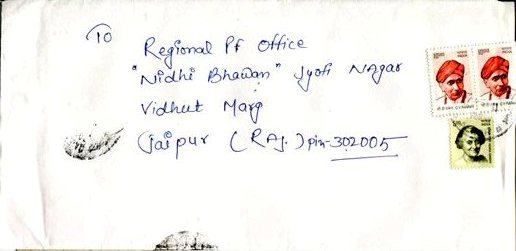 To
Regional Pf Office
"Nidhi Bhawan" Jyoti Nagar
Vidhut Marg
Jaipur (RAJ.) pin-302005